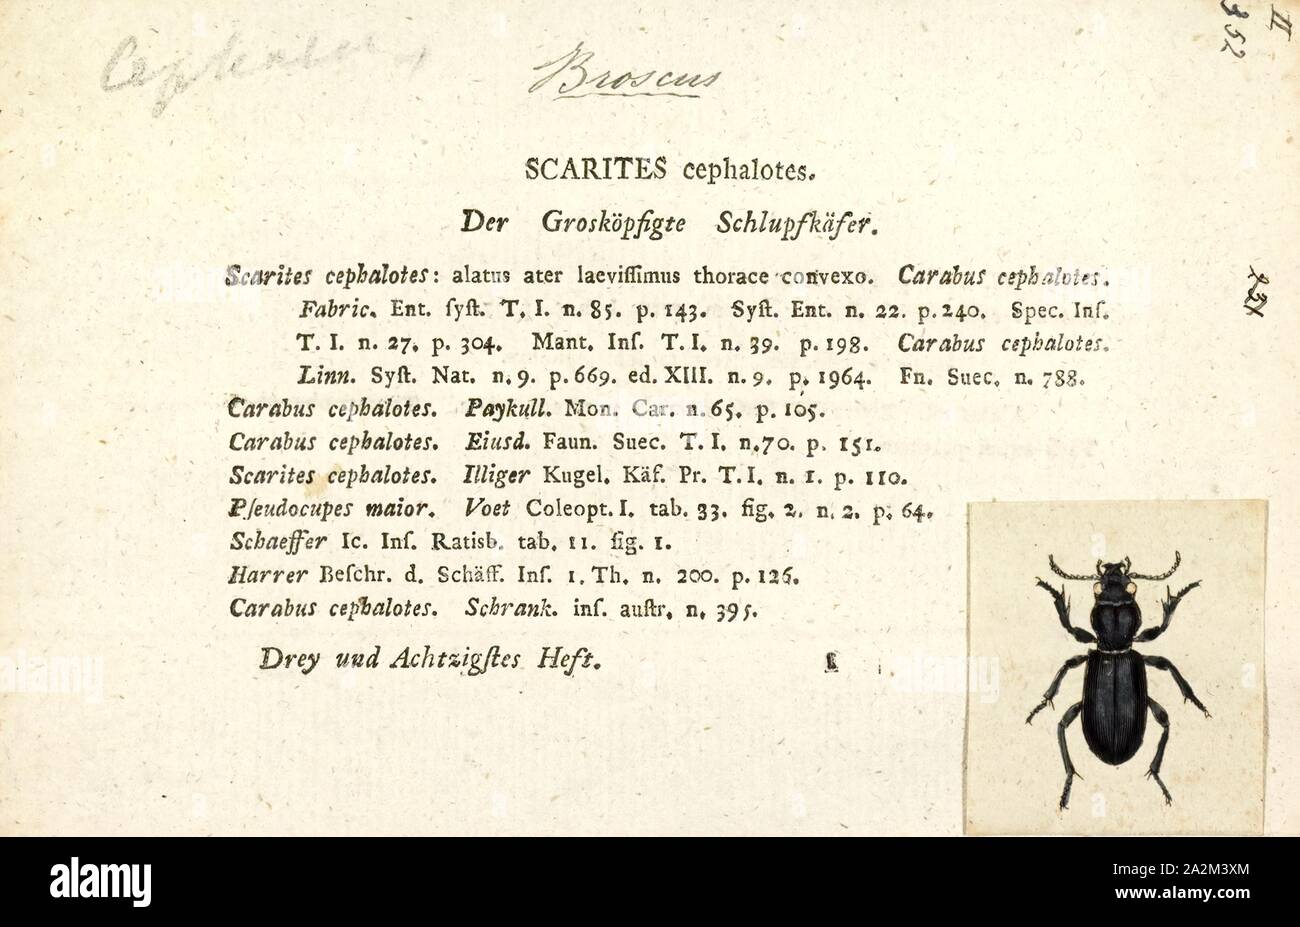 Cephalotes
Broscus
II
352
SCARITES cephalotes.
Der Grosköpfigte Schlupfkäfer.
Scarites cephalotes: alatus ater laeviſſimus thorace convexo. Carabus cephalotes.
Fabric. Ent. ſyſt. T. I. n. 85. p. 143. Syſt. Ent. n. 22. p. 240. Spec. Inſ.
T. I. n. 27. p. 304. Mant. Inſ. T. I. n. 39. p. 198. Carabus cephalotes.
Linn. Syſt. Nat. n. 9. p. 669. ed. XIII. n. 9. p. 1964. Fn. Suec. n. 788.
Carabus cephalotes. Paykull. Mon. Car. n. 65. p. 105.
Carabus cephalotes. Eiusd. Faun. Suec. T. I. n. 70. p. 151.
Scarites cephalotes. Illiger Kugel. Käf. Pr. T. I. n. 1. p. 110.
Pſeudocupes maior. Voet Coleopt. I. tab. 33. fig. 2. n. 2. p. 64.
Schaeffer Ic. Inſ. Ratisb. tab. 11. fig. 1.
Harrer Beſchr. d. Schäff. Inſ. 1. Th. n. 200. p. 126.
Carabus cephalotes. Schrank. inſ. auſtr. n. 395.
Drey und Achtzigſtes Heft.
alamy
Image ID: 2A2M3XM
www.alamy.com